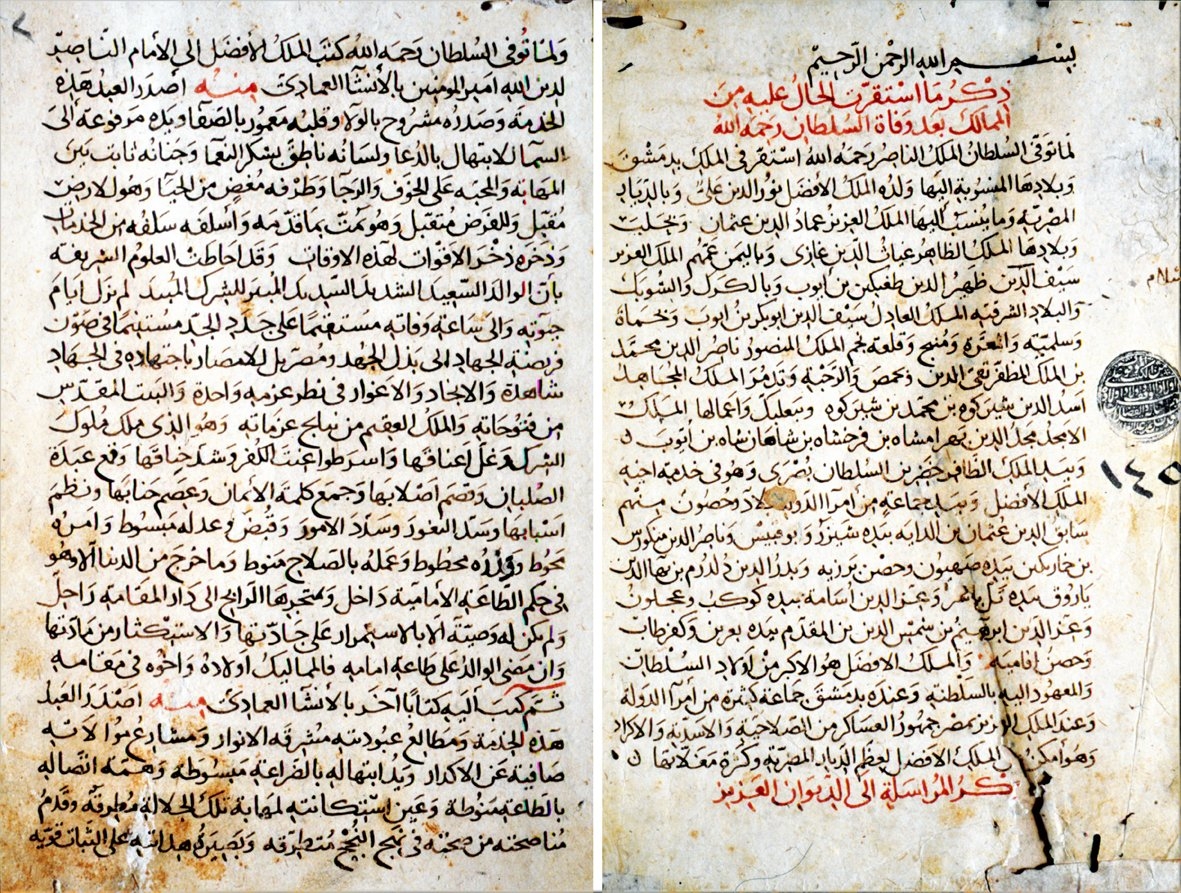 بسم الله الرحمن الرحيم
ذكر ما استقرت الحال عليه من
الممالك بعد وفاة السلطان رحمه الله
لما توفي السلطان الملك الناصر رحمه الله استقر في الملك بدمشق
وبلادها المنسوبة اليها ولده الملك الافضل نور الدين علي وبالديار
المصرية وما ينسب اليها الملك العزيز عماد الدين عثمان وبحلب
وبلادها الملك الظاهر غياث الدين غازي وباليمن عمهم الملك العزيز
سيف الدين ظهير الدين طغتكين بن ايوب وبالكرك والشوبك
والبلاد الشرقية الملك العادل سيف الدين ابو بكر بن ايوب وبحماة
وسلمية والمعرة ومنبج وقلعة نجم الملك المنصور ناصر الدين محمد
بن الملك المظفر تقي الدين وبحمص والرحبة وتدمر الملك المجاهد
اسد الدين شيركوه بن محمد بن شيركوه وببعلبك واعمالها الملك
الامجد مجد الدين بهرامشاه بن فرخشاه بن شاهانشاه بن ايوب
وبيد الملك الظافر خضر بن السلطان بصرى وهو في خدمة اخيه
الملك الافضل وبيد جماعة من امرا الدولة بلاد وحصون منهم
سابق الدين عثمان بن الداية بيده شيزر وابو قبيس وناصر الدين منكورس
بن خمارتكين بيده صهيون وحصن برزيه وبدر الدين دلدرم بن بها الدين
ياروق بيده تل باشر وعز الدين اسامة بيده كوكب وعجلون
وعز الدين ابرهيم بن شمس الدين بن المقدم بيده بعرين وكفرطاب
وحصن افامية والملك الافضل هو الاكبر من اولاد السلطان
والمعهود اليه بالسلطنة وعنده بدمشق جماعة كثيرة من امرا الدولة
وعند الملك العزيز بمصر جمهور العساكر من الصلاحية والاسدية والاكراد
وهو امكن من الملك الافضل لعظم الديار المصرية وكثرة مغلاتها
ذكر المراسلة الى الديوان العزيز
١٤٥
ولما توفي السلطان رحمه الله كتب الملك الافضل الى الامام الناصر
لدين الله امير المومنين بالانشا العمادي منه اصدر العبد هذه
الخدمة وصدره مشروح بالولا وقلبه معمور بالصفا ويده مرفوعة الى
السما للابتهال بالدعا ولسانه ناطق بشكر النعما وجنانه ثابت من
المهابة والمحبة على الخوف والرجا وطرفه مغض من الحيا وهو للارض
مقبل وللفرض متقبل وهو يمت بما قدمه واسلفه سلفه من الخدمات
وذخره ذخر الاقوات لهذه الاوقات وقد احاطت العلوم الشريفة
بان الوالد السعيد الشهيد السديد المبير للشرك المبيد لم يزل ايام
حيوته والى ساعة وفاته مستقيما على جدد الجد مستنيما في صون
فريضة الجهاد الى بذل الجهد ومصر بل الامصار باجتهاده في الجهاد
شاهدة والانجاد والاغوار في نظر عزمه واحدة والبيت المقدس
من فتوحاته والملك العقيم من نتايج عزماته وهو الذي ملك ملوك
الشرك وغل اعناقها واسر طواغيت الكفر وشد خناقها وقمع عبدة
الصلبان وقصم اصلابها وجمع كلمة الايمان وعصم جنابها ونظم
اسبابها وسد الثغور وسدد الامور وقبض وعدله مبسوط وامره
محوط ووزره محطوط وعمله بالصلاح منوط وما خرج من الدنيا الا وهو
في حكم الطاعة الامامية داخل وبمتجرها الرابح الى دار المقامة راحل
ولم يكن له وصية الا بالاستمرار على جادتها والاستكثار من مادتها
وان مضى الوالد على طاعة امامه فالمماليك اولاده واخوه في مقامه
ثم كتب اليه كتابا آخر بالانشا العمادي منه اصدر العبد
هذه الخدمة ومطالع عبوديته مشرقة الانوار ومشارع موالاته
صافية عن الاكدار ويد ابتهاله بالضراعة مبسوطة وهمة اتصاله
بالطاعة منوطة وعين استكانته لمهابة تلك الجلالة مطرقة وقدم
مناصحته من صحته في نهج النجح متطرقة وبصيرة هدايته على الثبات قوية